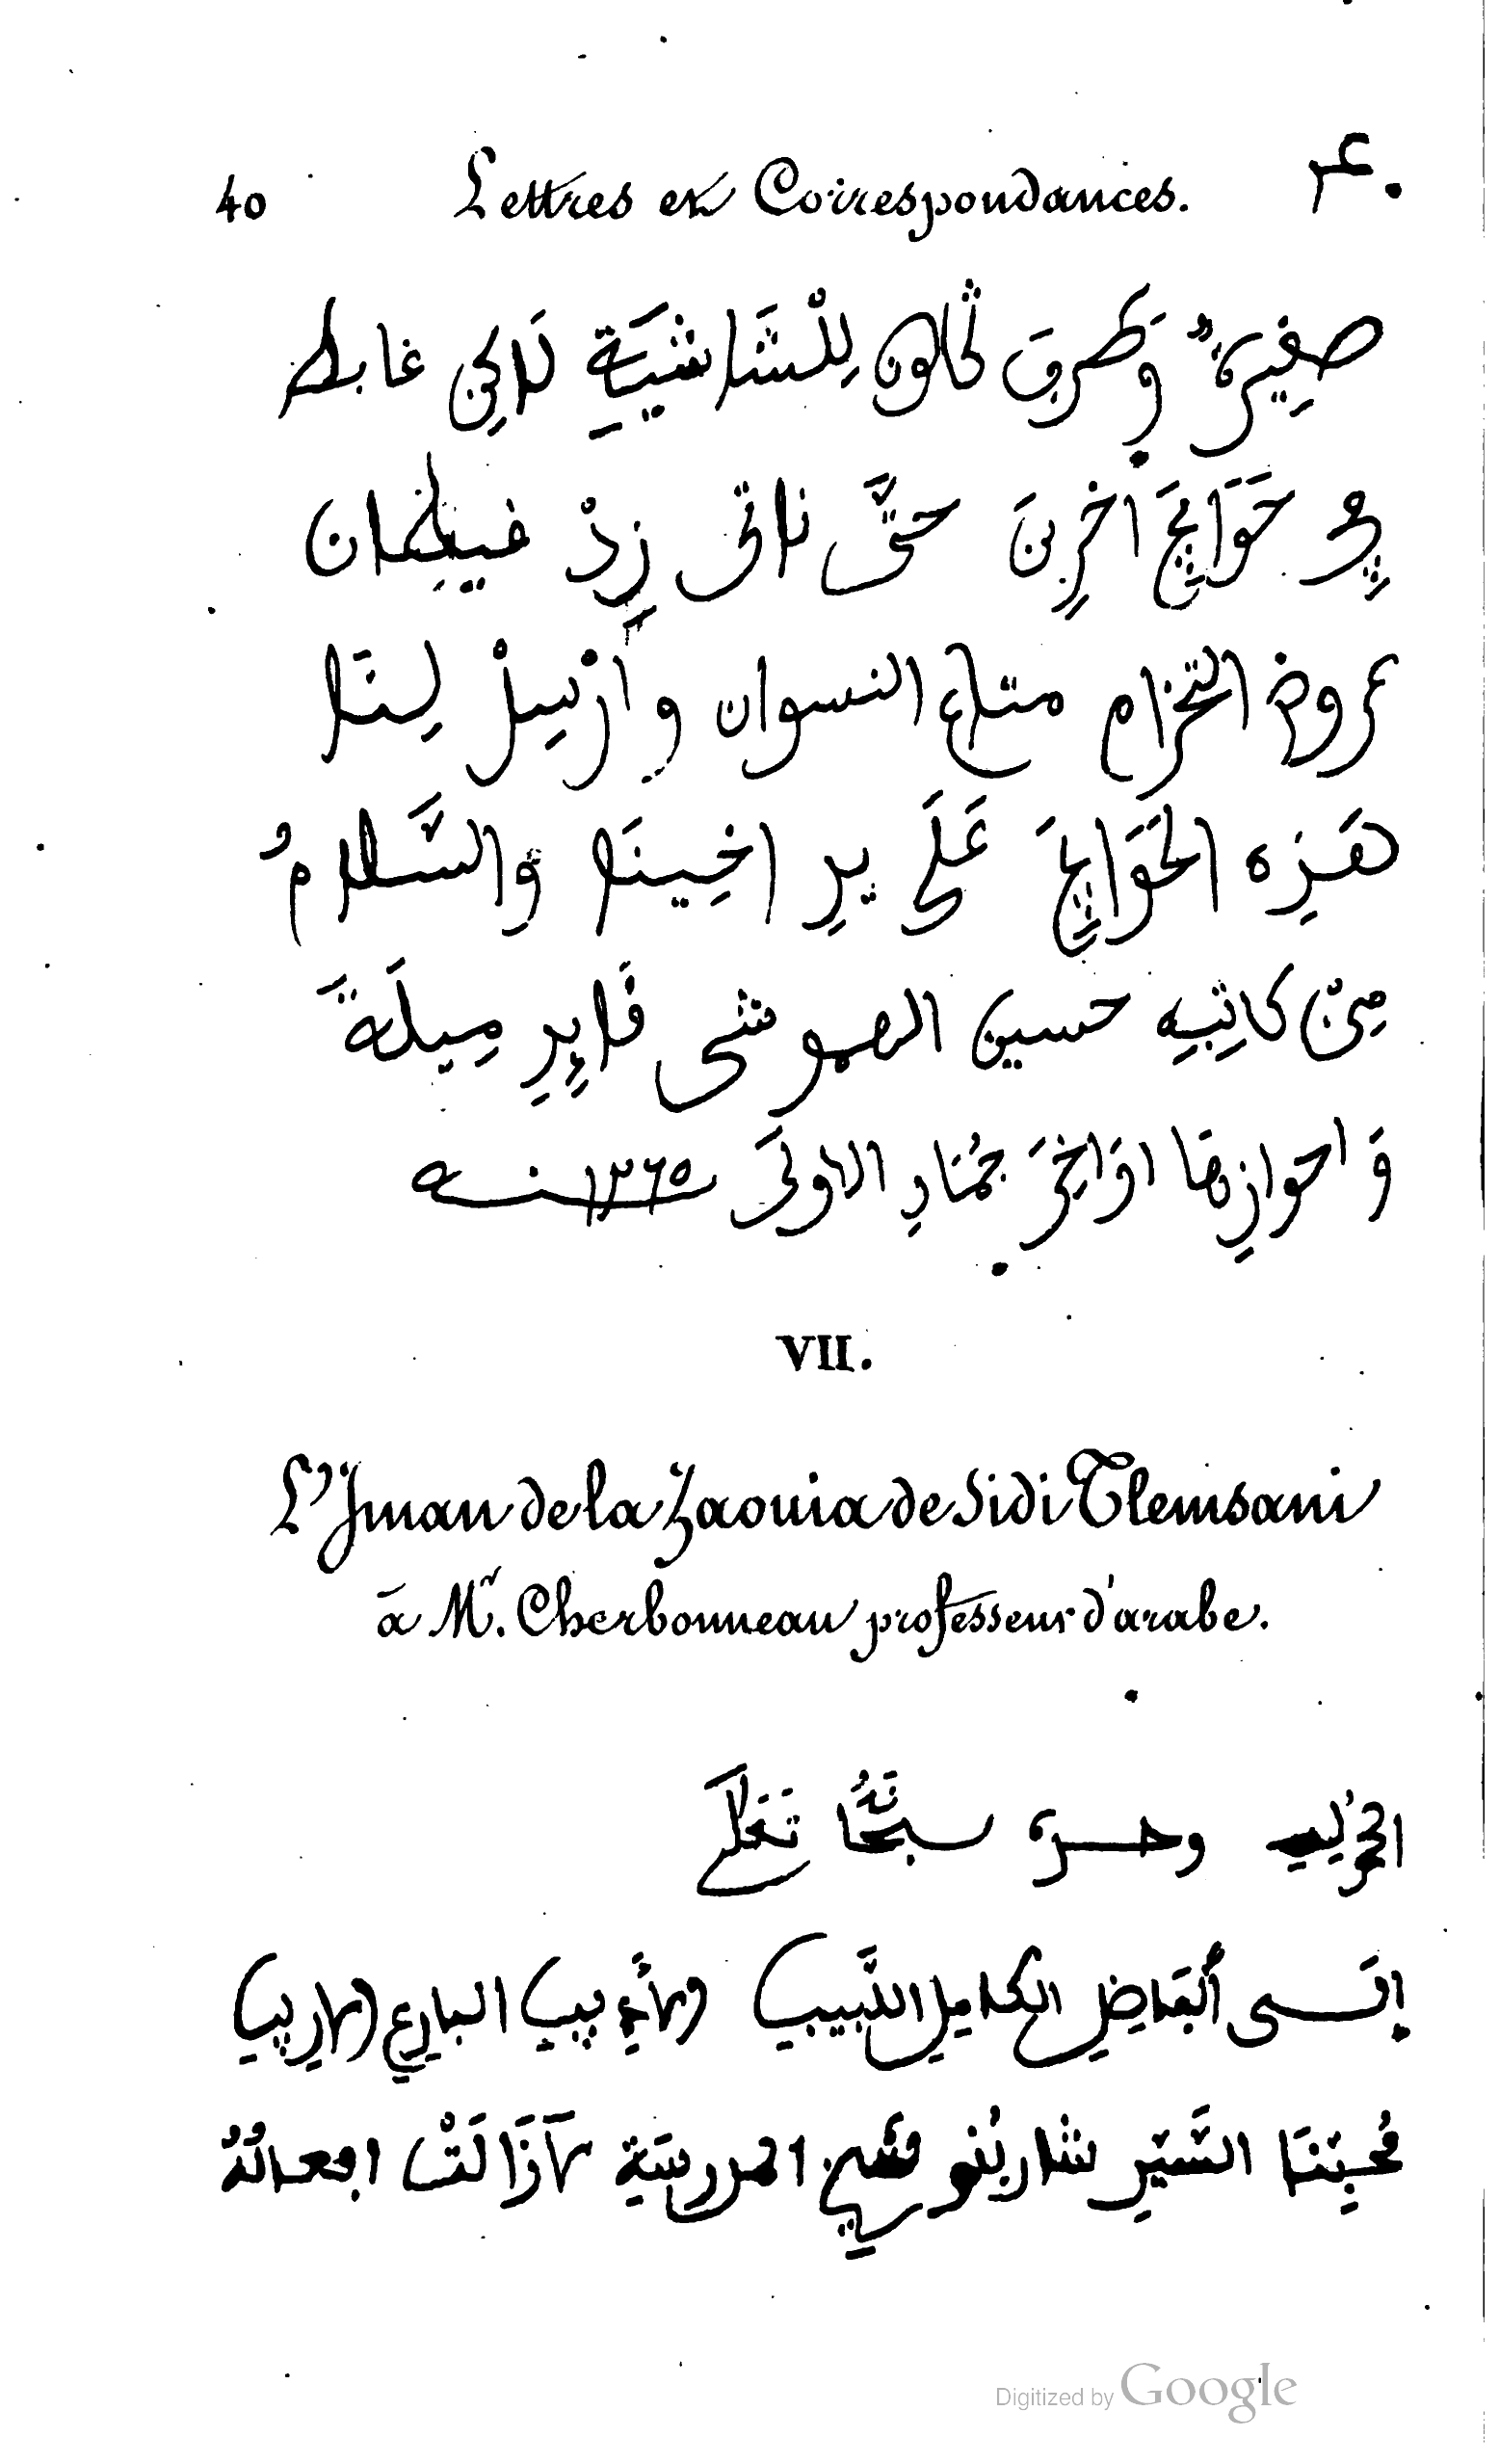 40 Lettres et Correspondances. ۴۰
صغيرة وطرق ثالون للشاشية لاني غابط
في حوايج اخرين حتى ناتي زد خيطان
عروض التحزام متاع النسوان وازيل لينا
هذه الحوايج على يد اخينا والسلام
من كاتبه حسين الهموشي قايد ميلة
و احوازها اواخر جماد الاولى سنة ١٢٦٥
VII.
L'Iman de la Zaouia de Sidi Tlemsani
à Mr. Cherbonneau professeur d'arabe.
الحمد لله وحده سبحانه تعلى
الفاضل الكامل اللبيب والاديب البارع الاريب
محبنا السيد شاربنو شيخ المدرسة لا زالت افعاله
Digitized by Google